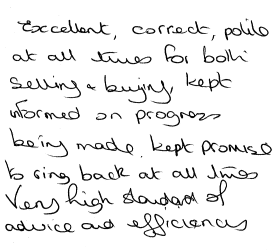 Excellent, correct, polite
at all times for both
selling & buying, kept
informed on progress
being made. kept promise
to ring back at all times
Very high standard of
advice and efficiency